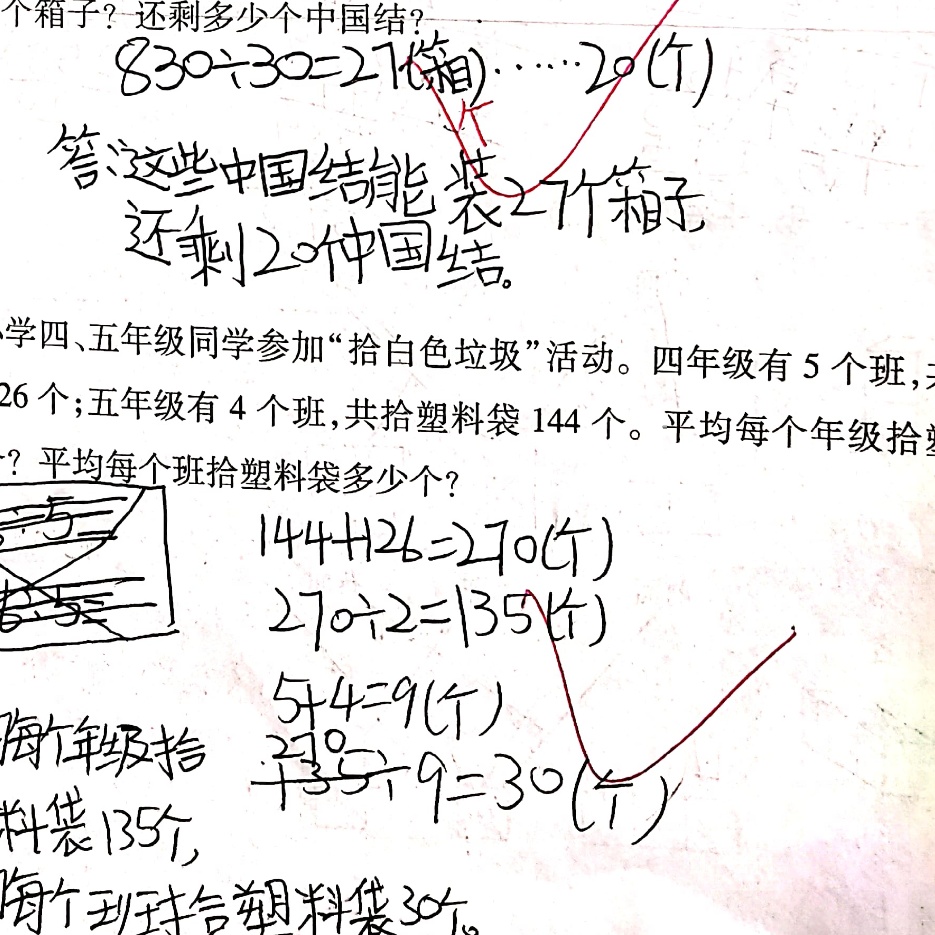 个箱子？还剩多少个中国结？
830÷30=27(箱)……20(个)
个
答:这些中国结能装27个箱子,
还剩20个中国结。
学四、五年级同学参加“拾白色垃圾”活动。四年级有 5 个班,共
26 个;五年级有 4 个班,共拾塑料袋 144 个。平均每个年级拾塑
？平均每个班拾塑料袋多少个？
÷5=
6÷5=
144+126=270(个)
270÷2=135(个)
5+4=9(个)
270
135÷9=30(个)
每个年级拾
料袋135个,
每个班拾塑料袋30个。